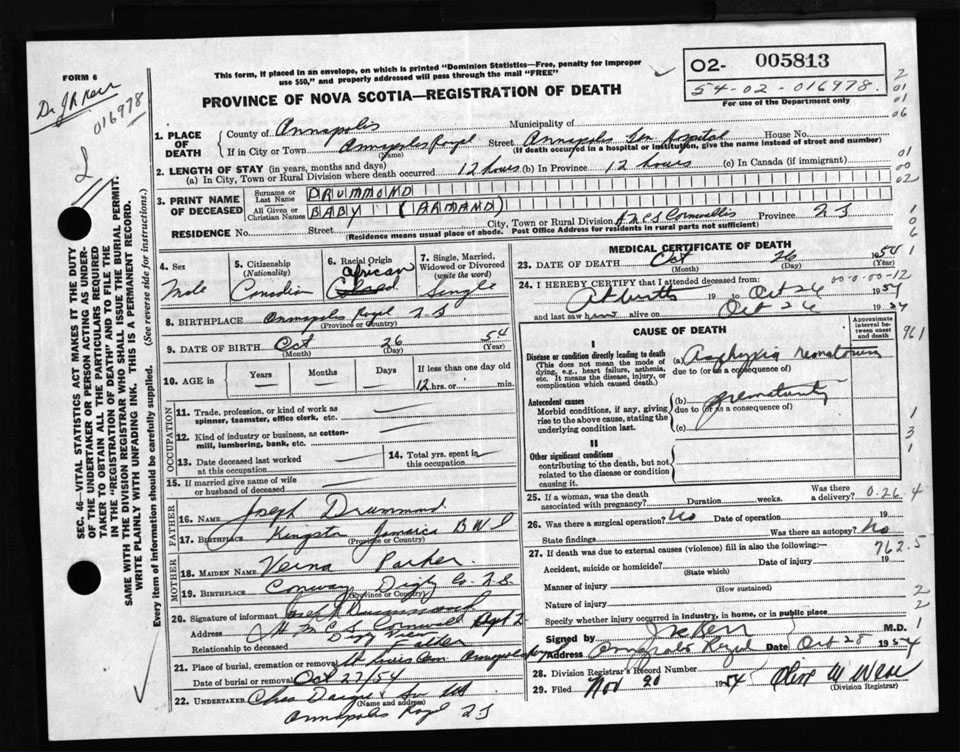 FORM 6
Dr J R Kerr
016978
2
This form, if placed in an envelope, on which is printed "Dominion Statistics—Free, penalty for improper
use $50," and properly addressed will pass through the mail "FREE"
PROVINCE OF NOVA SCOTIA—REGISTRATION OF DEATH
02- 005813
54-02-016978.
For use of the Department only
1. PLACE OF DEATH
County of Annapolis Municipality of
If in City or Town Annapolis Royal Street Annapolis Gen Hospital House No.
(Name) (If death occurred in a hospital or institution, give the name instead of street and number)
2. LENGTH OF STAY (in years, months and days)
(a) In City, Town or Rural Division where death occurred 12 hours (b) In Province 12 hours (c) In Canada (if immigrant)
3. PRINT NAME OF DECEASED
Surname or Last Name DRUMMOND
All Given or Christian Names BABY (ARMAND)
RESIDENCE No. Street City, Town or Rural Division Cornwallis Province N S
(Residence means usual place of abode. Post Office Address for residents in rural parts not sufficient)
4. Sex
Male
5. Citizenship (Nationality)
Canadian
6. Racial Origin
African
7. Single, Married, Widowed or Divorced (write the word)
Single
8. BIRTHPLACE Annapolis Royal N S
(Province or Country)
9. DATE OF BIRTH Oct 26 54
(Month) (Day) (Year)
10. AGE in Years Months Days If less than one day
12 hrs. or min.
OCCUPATION
11. Trade, profession, or kind of work as spinner, teamster, office clerk, etc.
12. Kind of industry or business, as cotton-mill, lumbering, bank, etc.
13. Date deceased last worked at this occupation
14. Total yrs. spent in this occupation
15. If married give name of wife or husband of deceased
FATHER
16. NAME Joseph Drummond
17. BIRTHPLACE Kingston Jamaica B W I
(Province or Country)
MOTHER
18. MAIDEN NAME Verna Parker
19. BIRTHPLACE Conway Digby Co. N S
(Province or Country)
20. Signature of informant Joseph Drummond
Address H M C S Cornwallis
Relationship to deceased Father
21. Place of burial, cremation or removal
Date of burial or removal Oct 27/54
22. UNDERTAKER Chas
(Name and address)
Annapolis Royal N S
MEDICAL CERTIFICATE OF DEATH
23. DATE OF DEATH Oct 26 1954
(Month) (Day) (Year)
24. I HEREBY CERTIFY that I attended deceased from: 00-0-00-12
At birth 19 to Oct 26 1954
and last saw him alive on Oct 26 1954
CAUSE OF DEATH
Approximate interval between onset and death
I
Disease or condition directly leading to death (a) Asphyxia neonatorum
(This does not mean the mode of dying, e.g., heart failure, asthenia, etc. It means the disease, injury, or complication which caused death.)
due to (or as a consequence of)
Antecedent causes (b) prematurity
Morbid conditions, if any, giving rise to the above cause, stating the underlying condition last.
due to (or as a consequence of)
(c)
II
Other significant conditions
contributing to the death, but not related to the disease or condition causing it.
25. If a woman, was the death associated with pregnancy? Duration weeks. Was there a delivery? 0-26.4
26. Was there a surgical operation? No Date of operation 19
State findings Was there an autopsy? No
27. If death was due to external causes (violence) fill in also the following:— 762.5
Accident, suicide or homicide? Date of injury 19
(State which)
Manner of injury
(How sustained)
Nature of injury
Specify whether injury occurred in industry, in home, or in public place
Signed by J R Kerr M.D.
Address Annapolis Royal Date Oct 28 1954
28. Division Registrar's Record Number
29. Filed Nov 20 1954
(Division Registrar)
SEC. 46—VITAL STATISTICS ACT MAKES IT THE DUTY
OF THE UNDERTAKER OR PERSON ACTING AS UNDER-
TAKER TO OBTAIN ALL THE PARTICULARS REQUIRED
IN THE "REGISTRATION OF DEATH" AND TO FILE THE
SAME WITH THE DIVISION REGISTRAR WHO SHALL ISSUE THE BURIAL PERMIT.
WRITE PLAINLY WITH UNFADING INK. THIS IS A PERMANENT RECORD.
Every item of information should be carefully supplied. (See reverse side for instructions.)